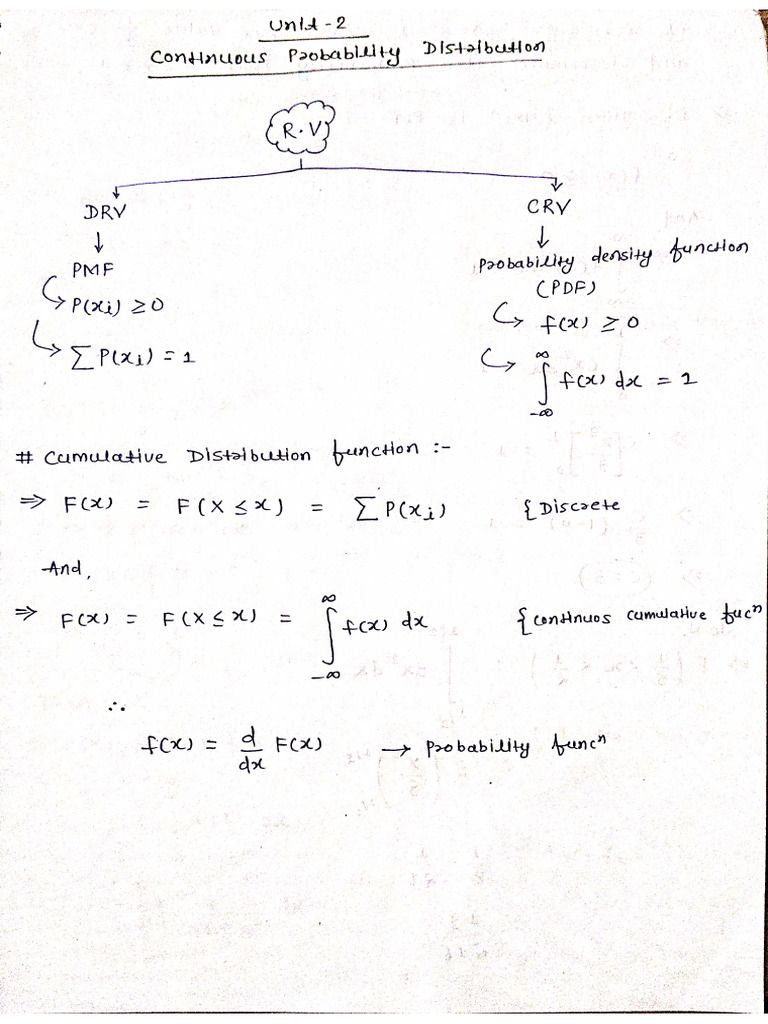 Unit-2
Continuous Probability Distribution
R.V
DRV
CRV
PMF
Probability density function
(PDF)
P(xi) ≥ 0
f(x) ≥ 0
∑ P(xi) = 1
∫_{-∞}^{∞} f(x) dx = 1
# Cumulative Distribution function :-
⇒ F(x) = F(X ≤ x) = ∑ P(xi) { Discrete
And,
⇒ F(x) = F(X ≤ x) = ∫_{-∞}^{∞} f(x) dx { continuos cumulative fucⁿ
∴
f(x) = d/dx F(x) → Probability funcⁿ